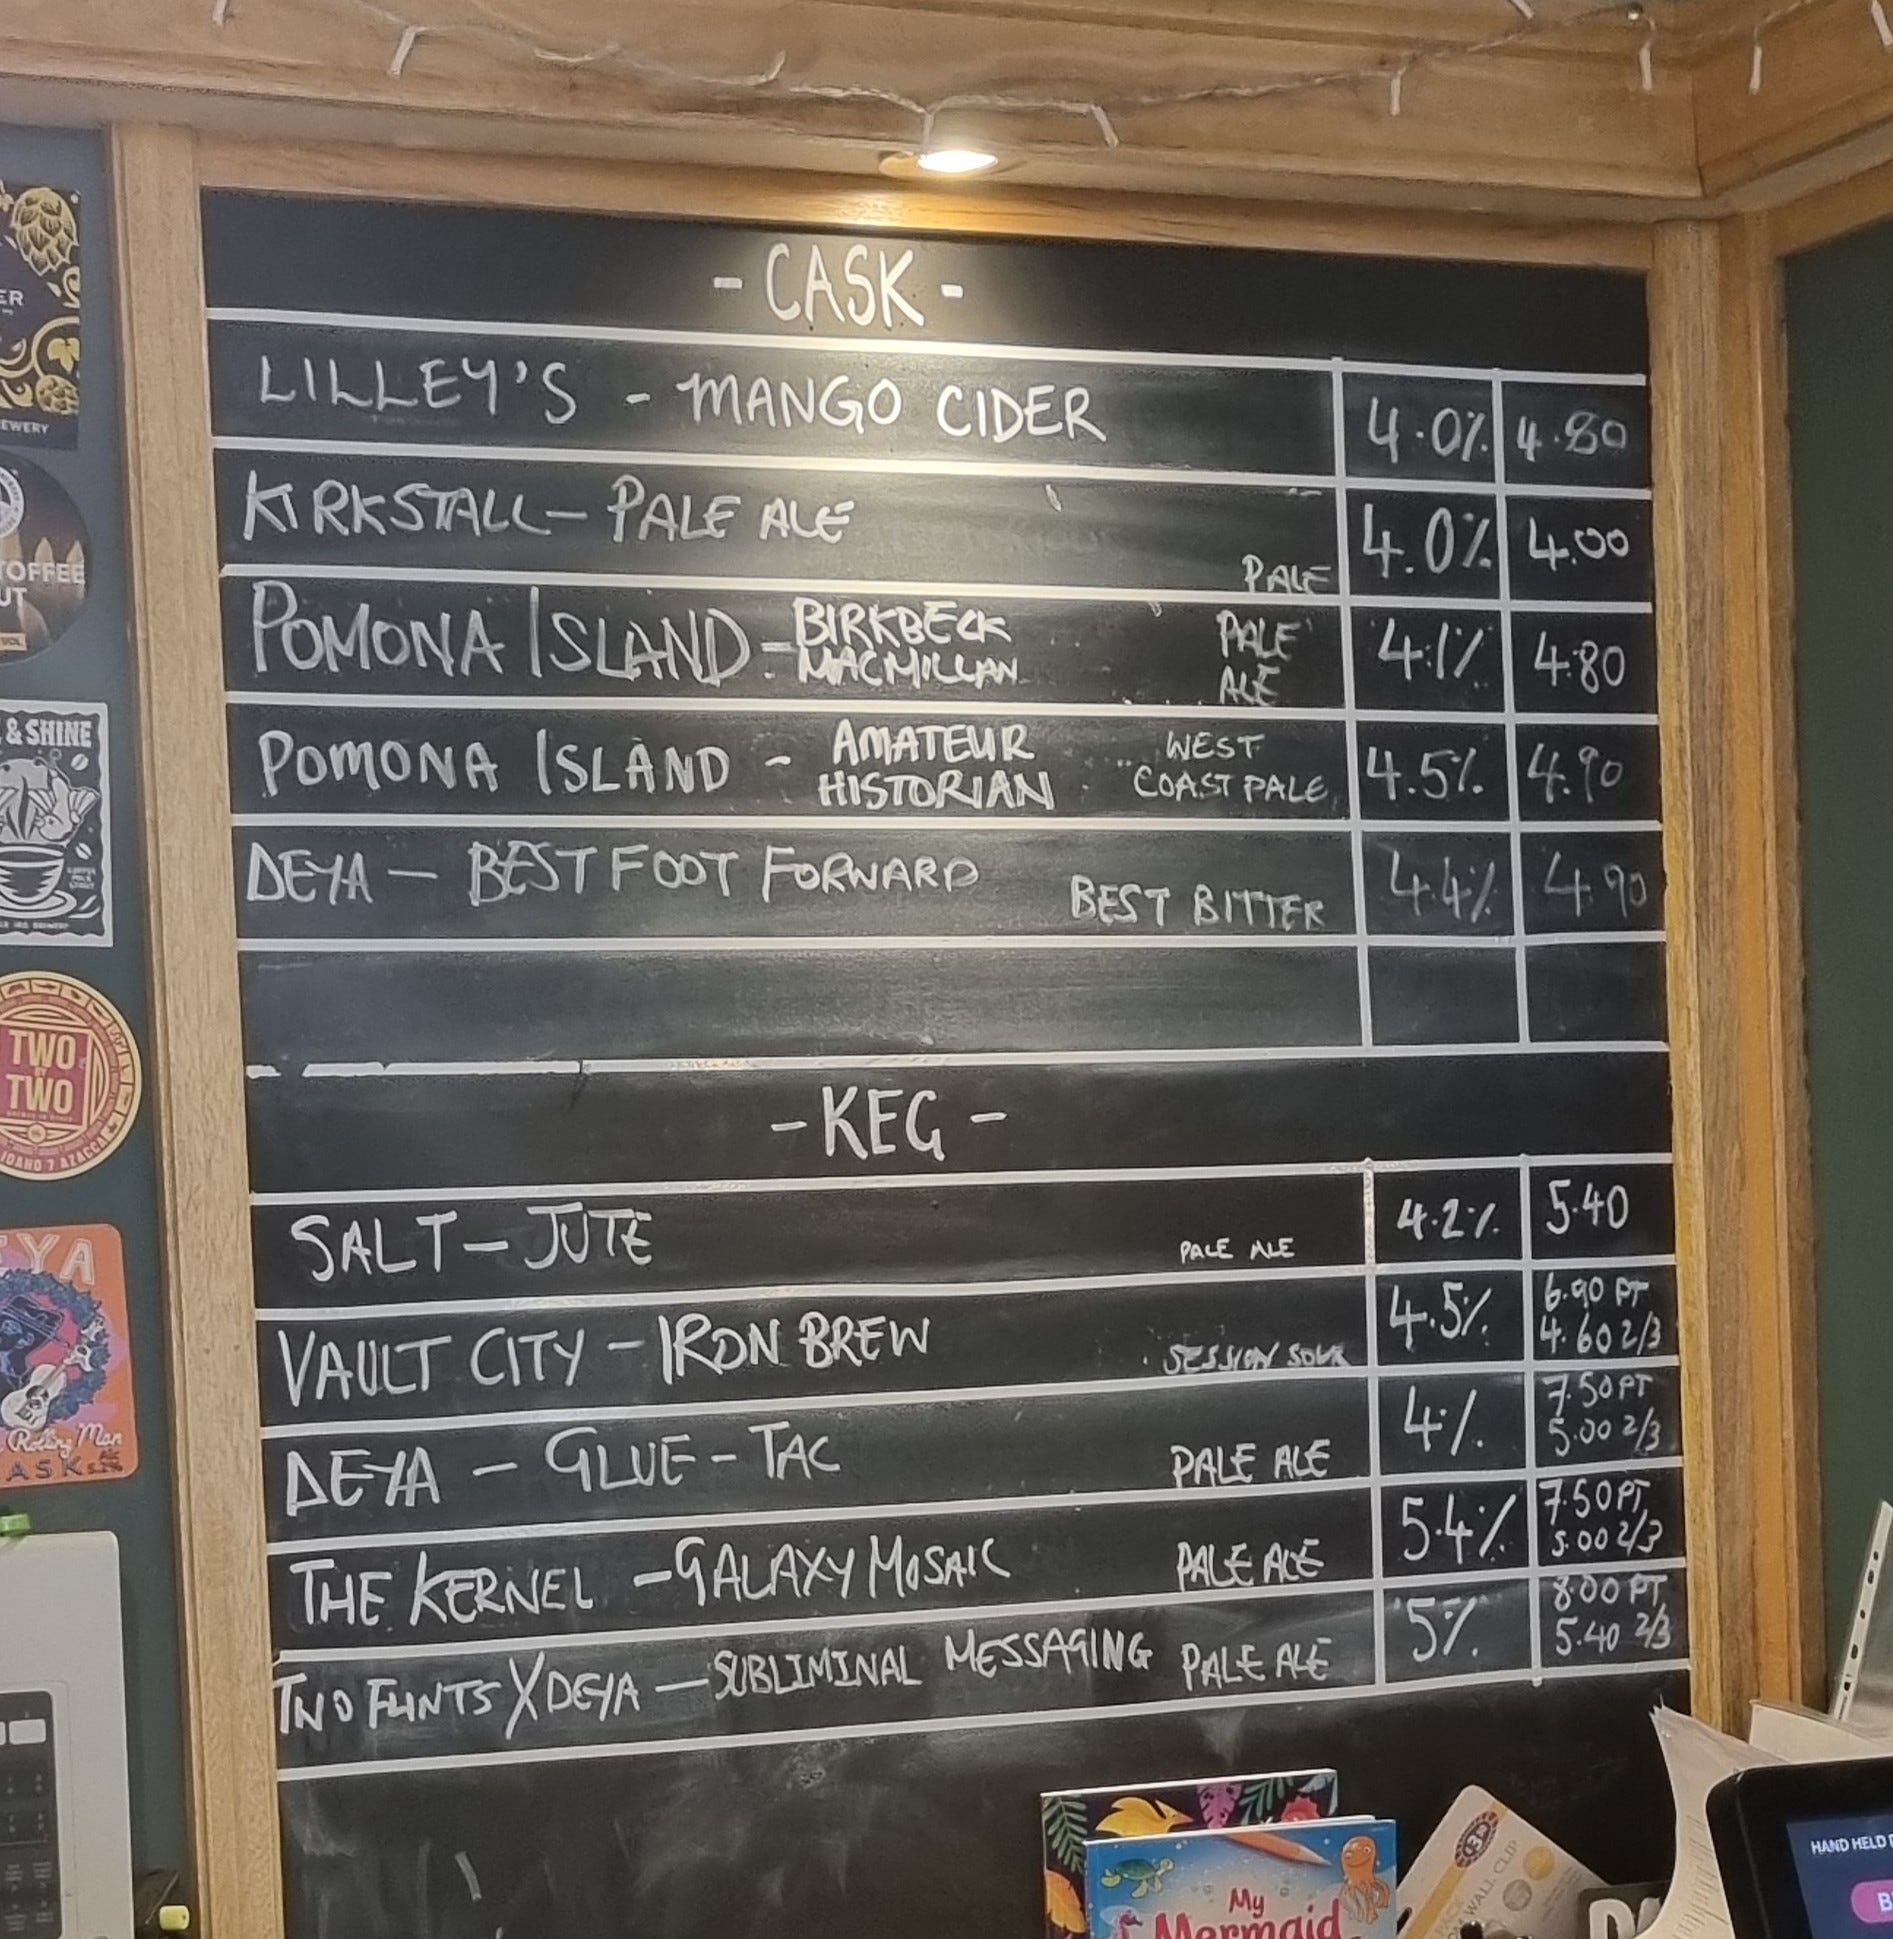 - CASK -
LILLEY'S - MANGO CIDER 4.0% 4.80
KIRKSTALL - PALE ALE PALE 4.0% 4.00
POMONA ISLAND - BIRKBECK MACMILLAN PALE ALE 4.1% 4.80
POMONA ISLAND - AMATEUR HISTORIAN WEST COAST PALE 4.5% 4.90
DEYA - BEST FOOT FORWARD BEST BITTER 4.4% 4.90
- KEG -
SALT - JUTE PALE ALE 4.2% 5.40
VAULT CITY - IRON BREW SESSION SOUR 4.5% 6.90 PT 4.60 2/3
DEYA - GLUE-TAC PALE ALE 4% 7.50 PT 5.00 2/3
THE KERNEL - GALAXY MOSAIC PALE ALE 5.4% 7.50 PT 5.00 2/3
TWO FLINTS X DEYA - SUBLIMINAL MESSAGING PALE ALE 5% 8.00 PT 5.40 2/3
ER
EWERY
TOFFEE
UT
& SHINE
TWO
BY
TWO
IDAHO 7 AZACCA
EYA
Rolling Man
ASK
My
Mermaid
WALL CLIP
HAND HELD
B